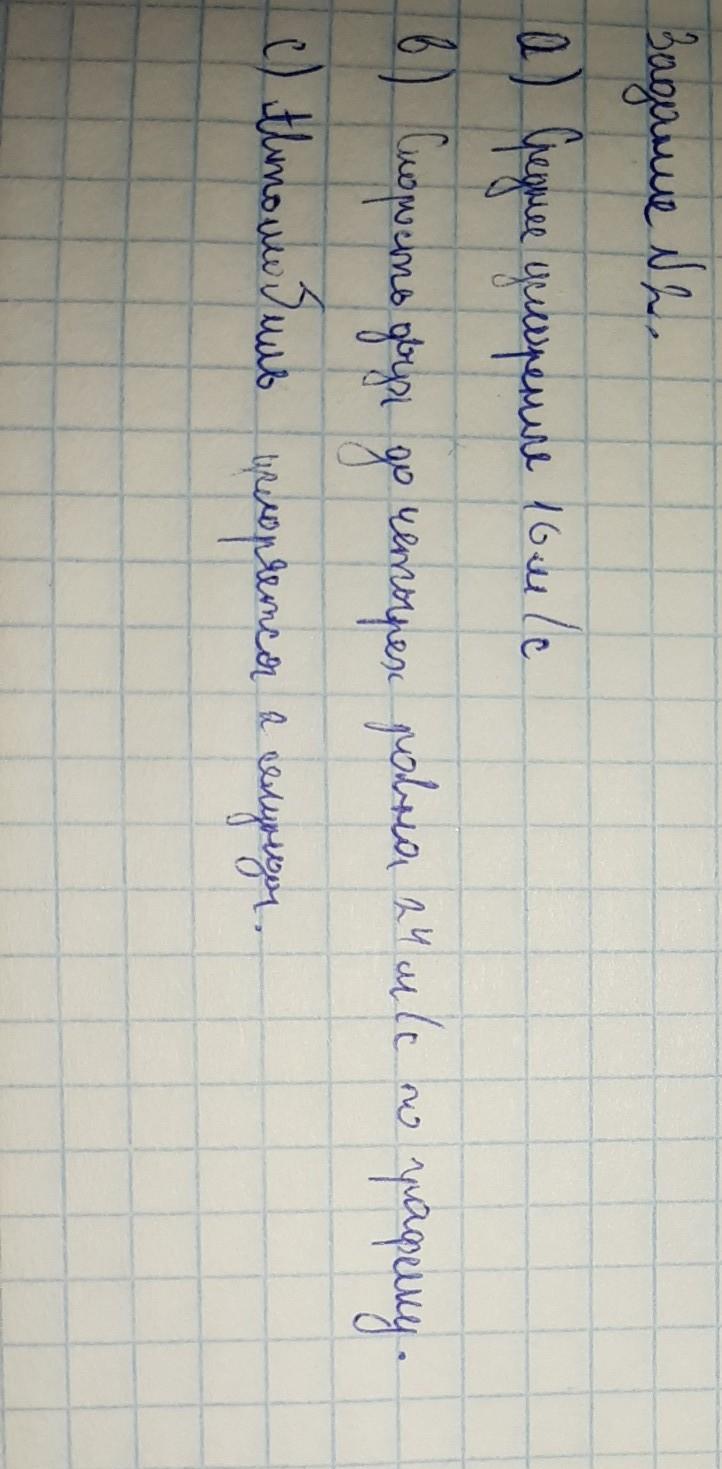 Задание N2.
a) Среднее ускорение 16 м/с
в) Скорость двух до четырех равна 24 м/с по графику.
c) Автомобиль ускоряется 2 секунды.